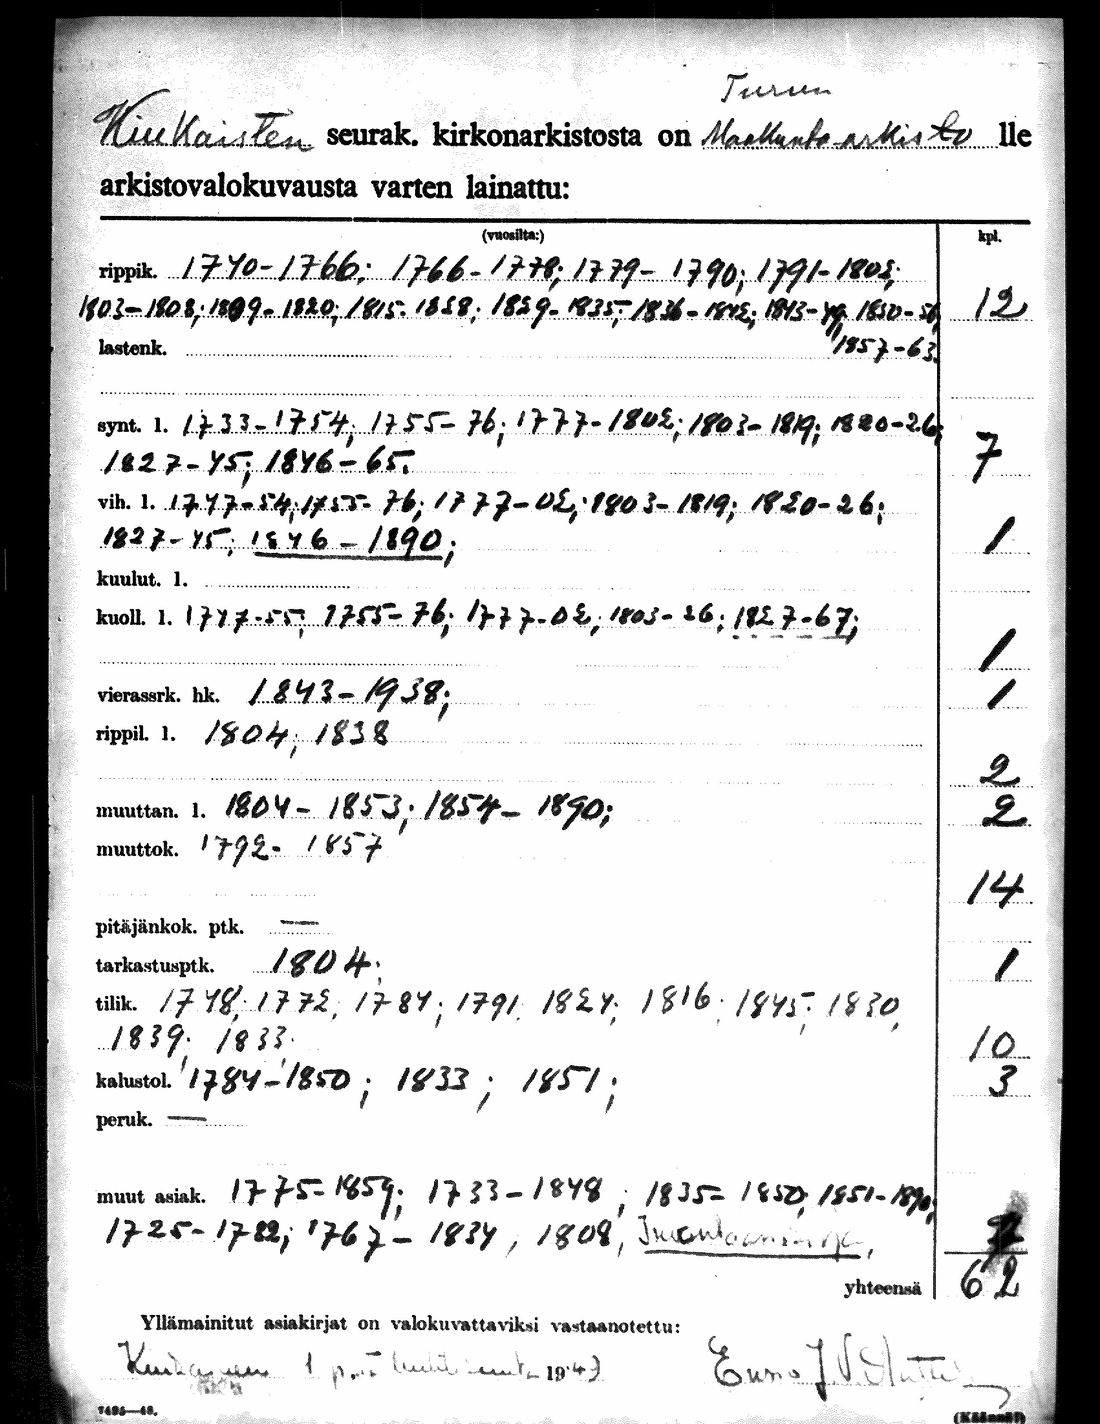 Turun
Kiukaisten seurak. kirkonarkistosta on Maakunta-arkisto lle
arkistovalokuvausta varten lainattu:
(vuosilta:) kpl.
rippik. 1740-1766; 1766-1778; 1779-1790; 1791-1802;
1803-1808; 1809-1820; 1815-1828; 1829-1835; 1836-1842; 1843-49; 1850-56, 12
lastenk. 1857-63.
synt. l. 1733-1754; 1755-76; 1777-1802; 1803-1819; 1820-26;
1827-45; 1846-65. 7
vih. l. 1747-54; 1755-76; 1777-02; 1803-1819; 1820-26;
1827-45; 1846-1890; 1
kuulut. l.
kuoll. l. 1747-55; 1755-76; 1777-02; 1803-26; 1827-67;
1
vierassrk. hk. 1843-1938; 1
rippil. l. 1804; 1838
2
muuttan. l. 1804-1853; 1854-1890; 2
muuttok. 1792-1857
14
pitäjänkok. ptk. —
tarkastusptk. 1804; 1
tilik. 1748; 1772; 1784; 1791; 1824; 1816; 1845; 1830,
1839; 1833. 10
kalustol. 1784-1850; 1833; 1851; 3
peruk. —
muut asiak. 1775-1859; 1733-1848; 1835-1850; 1851-1890;
1725-1782; 1767-1834, 1808,
yhteensä 62
Yllämainitut asiakirjat on valokuvattaviksi vastaanotettu:
1 p:nä huhtikuuta 1947 Enno J. V.
7495—48. (Käännä!)